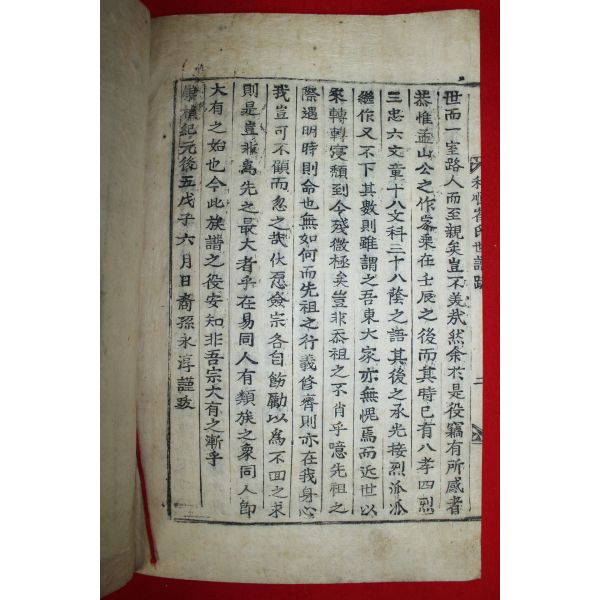 世而一室路人而至親矣豈不美哉然余於是役竊有所感者
恭惟孟山公之作家乘在壬辰之後而其時已有八孝四烈
三忠六文章十八文科三十八蔭之譜其後之承光接烈派派
繼作又不下其數則雖謂之吾東大家亦無愧焉而近世以
來轉轉寖頹到今殘微極矣豈非忝祖之不肖乎噫先祖之
際遇明時則命也無如何而先祖之行義修齊則亦在我身心
我豈可不顧而忽之哉伏願僉宗各自飭勵以爲不回之求
則是豈非爲先之最大者乎在易同人有類族之象同人卽
大有之始也今此族譜之役安知非吾宗大有之漸乎
紀元後五戊子六月日裔孫永淳謹跋
崔氏世譜跋
二